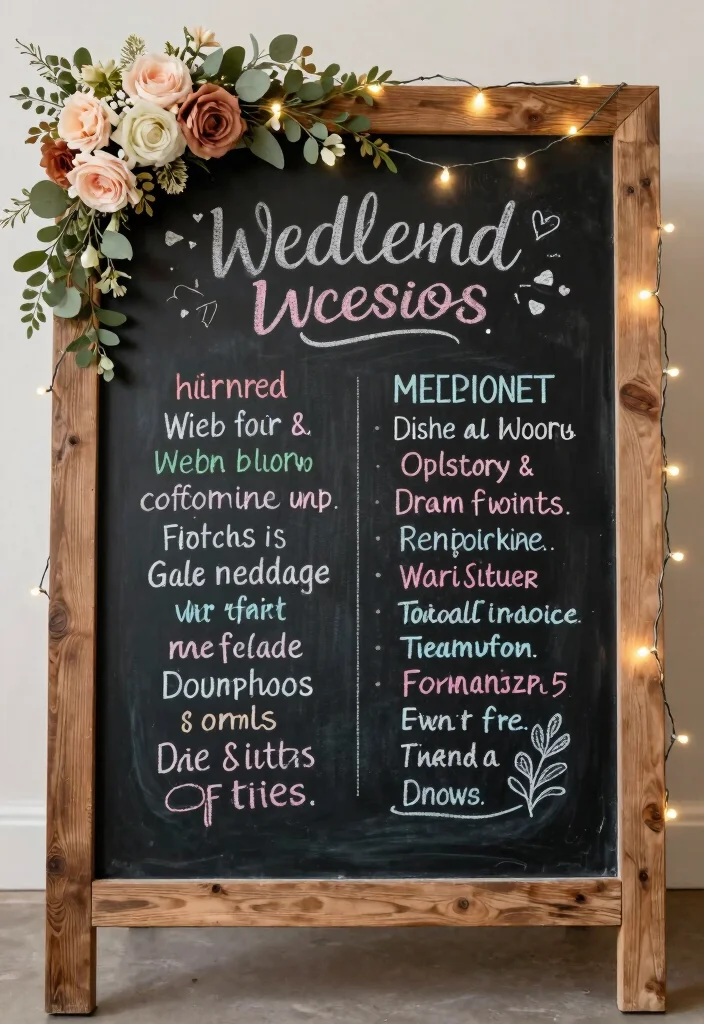 Wedlemnd
Wcesios.
hiirnred
Wieb foir &
Webn bluorvo
coffomine unp.
Fiotchs is
Gale neddage
me felade
Dounphoos
8 omls
Die & iitts
OF tiies.
MEEPIONET
Dishe al Wooru
Oplstory &
Dram fwoints.
Renpoirkine..
Wari Situer
Toitoall indoice.
Tieamufon.
Formanszp. 5
Ewn't fre.
Twand a
Dnows.